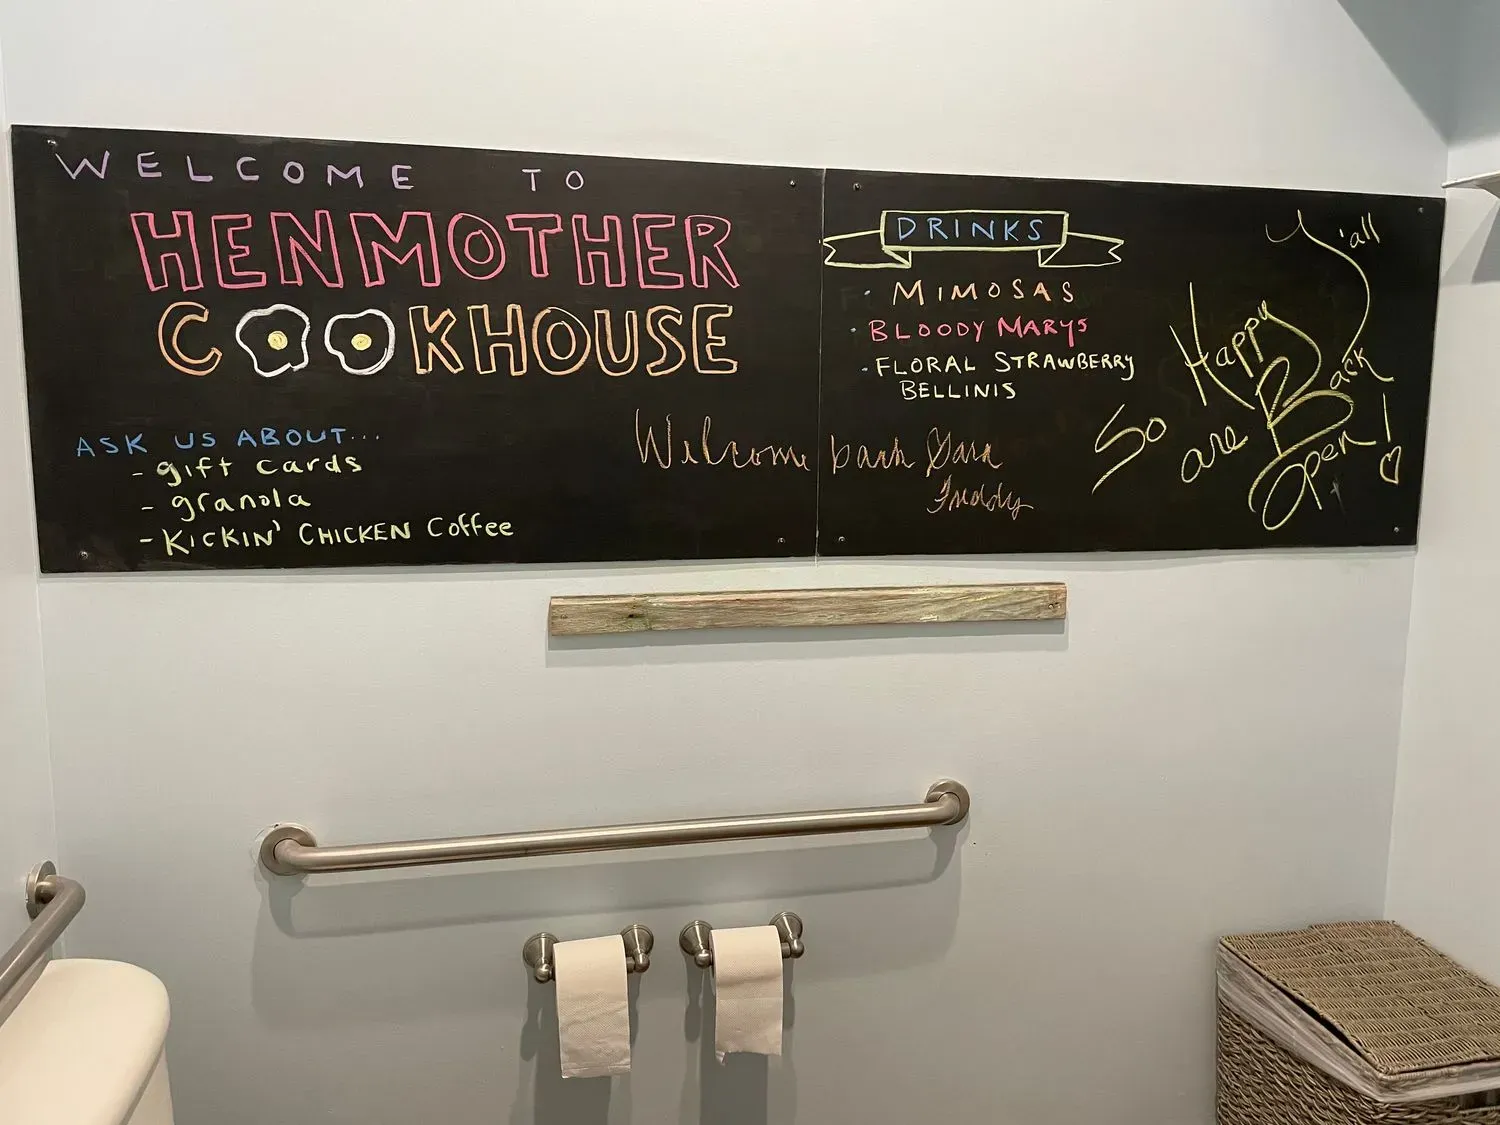 WELCOME TO
HENMOTHER
COOKHOUSE
ASK US ABOUT...
- gift cards
- granola
- KICKIN' CHICKEN Coffee
Welcome back Sara
Freddy
DRINKS
· MIMOSAS
· BLOODY MARYS
· FLORAL STRAWBERRY
BELLINIS
So Happy
Y'all
are Back
Open!